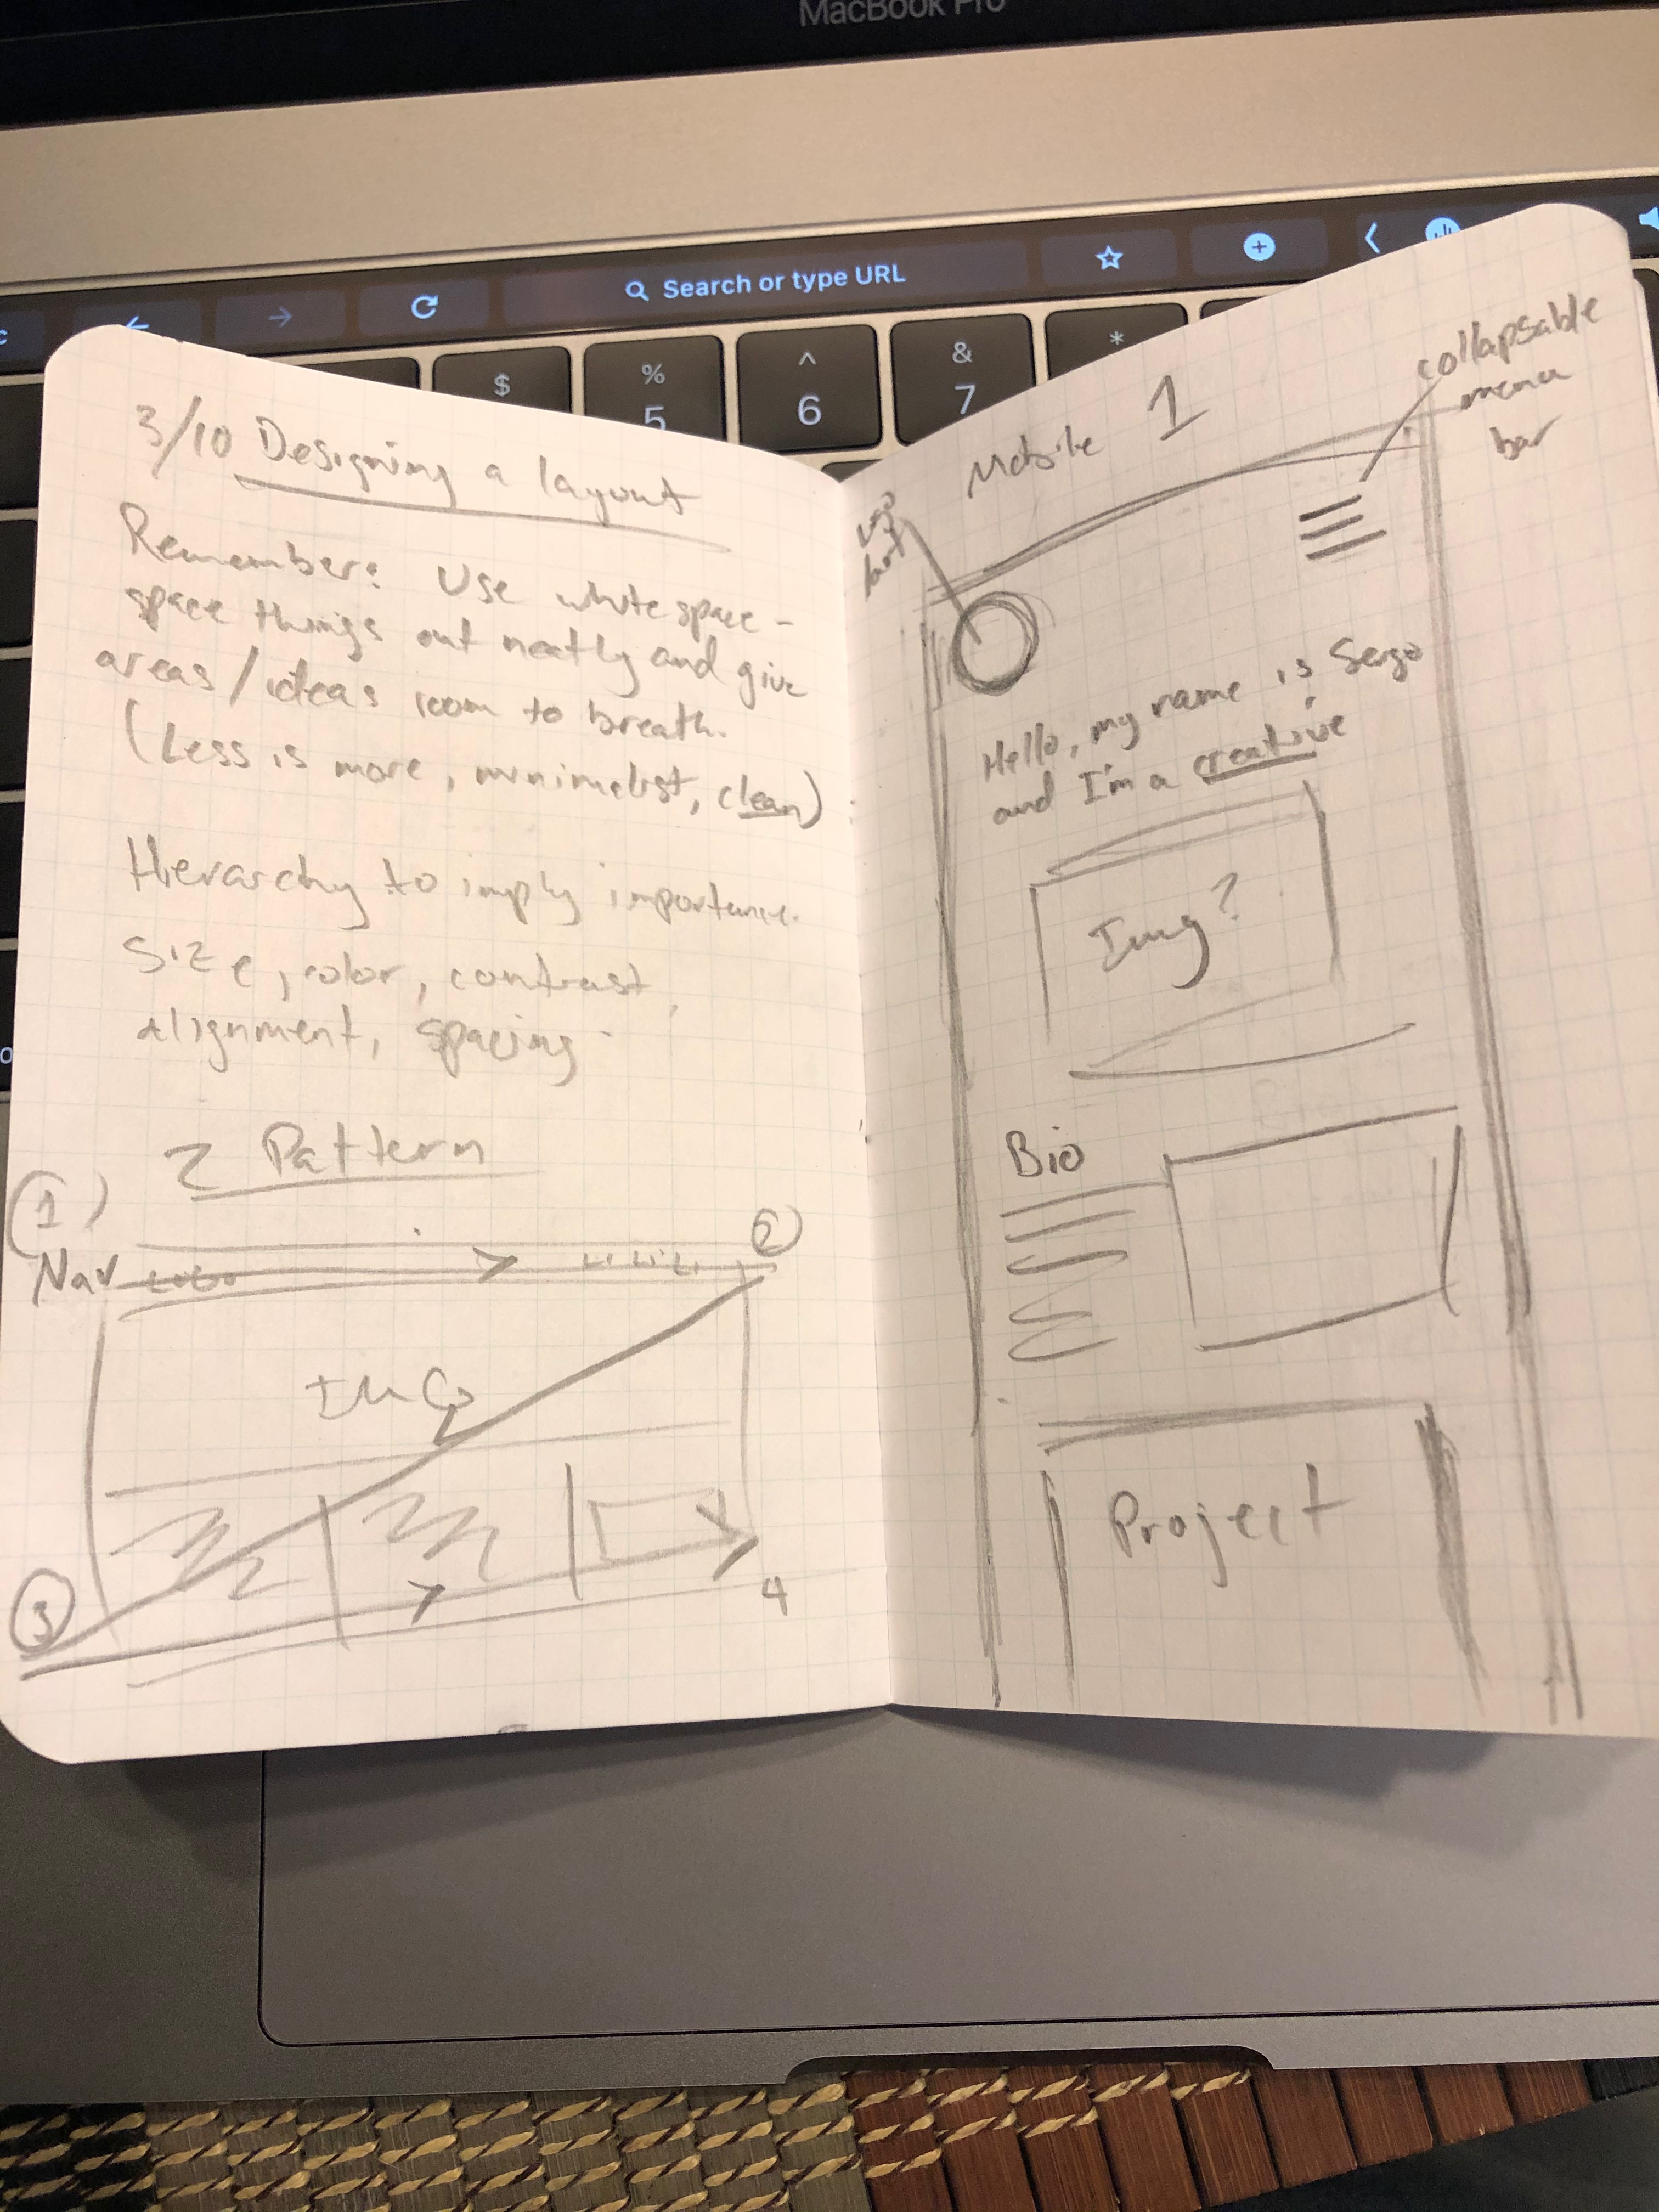 MacBook Pro
Search or type URL
$
%
5
^
6
&
7
*
3/10 Designing a layout
Remember: Use white space -
space things out neatly and give
areas/ideas room to breath.
(Less is more, minimalist, clean)
Hierarchy to imply importance.
Size, color, contrast,
alignment, spacing
Z Pattern
1
2
Nav LOGO
IMG
3
4
Mobile 1
collapsable
menu
bar
Logo
Hello, my name is Sergo
and I'm a creative
Img?
Bio
Project